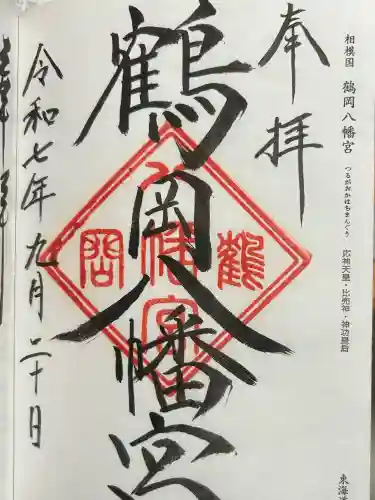 相模国 鶴岡八幡宮 つるがおかはちまんぐう 応神天皇・比売神・神功皇后
東海道
奉拝
鶴岡八幡宮
鶴
八幡宮
岡
令和七年九月二十日